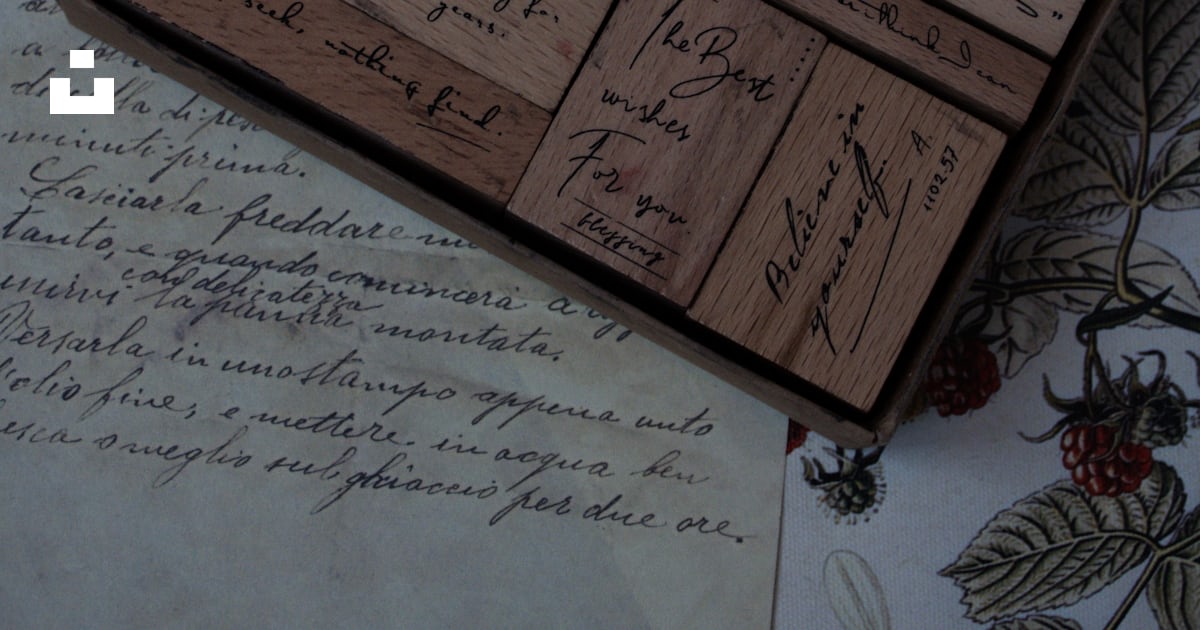 seek, nothing find.
years.
The Best
wishes
For you
blessing
Believe in
yourself.
A.
1102-57
think I can
a
di
minuti prima.
Lasciarla freddare
tanto, e quando comincerà a
unirvi con delicatezza
la panna montata.
Versarla in uno stampo appena unto
d'olio fine, e mettere in acqua ben
o meglio sul ghiaccio per due ore.